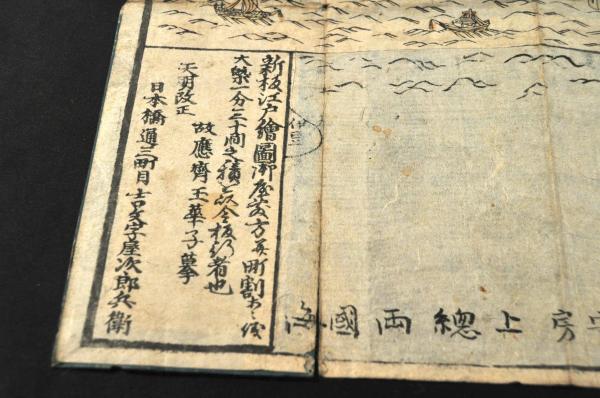 新板江戸繪圖御屋敷方并町割
大築一分三十間之積を以今板行者也
故應齊玉華子摹
天明改正
日本橋通三町目 吉文字屋次郎兵衛
房上總両國海